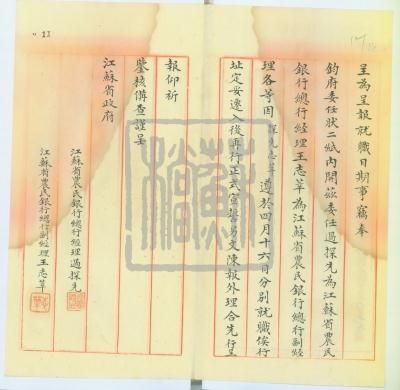 呈為呈報就職日期事竊奉
鈞府委任狀二紙內開茲委任過探先為江蘇省農民
銀行總行經理王志莘為江蘇省農民銀行總行副經
理各等因探先志莘遵於四月十六日分別就職俟行
址定妥遷入後再行正式宣誓另文陳報外理合先行呈
報仰祈
鑒核備查謹呈
江蘇省政府
江蘇省農民銀行總行經理過探先
江蘇省農民銀行總行副經理王志莘